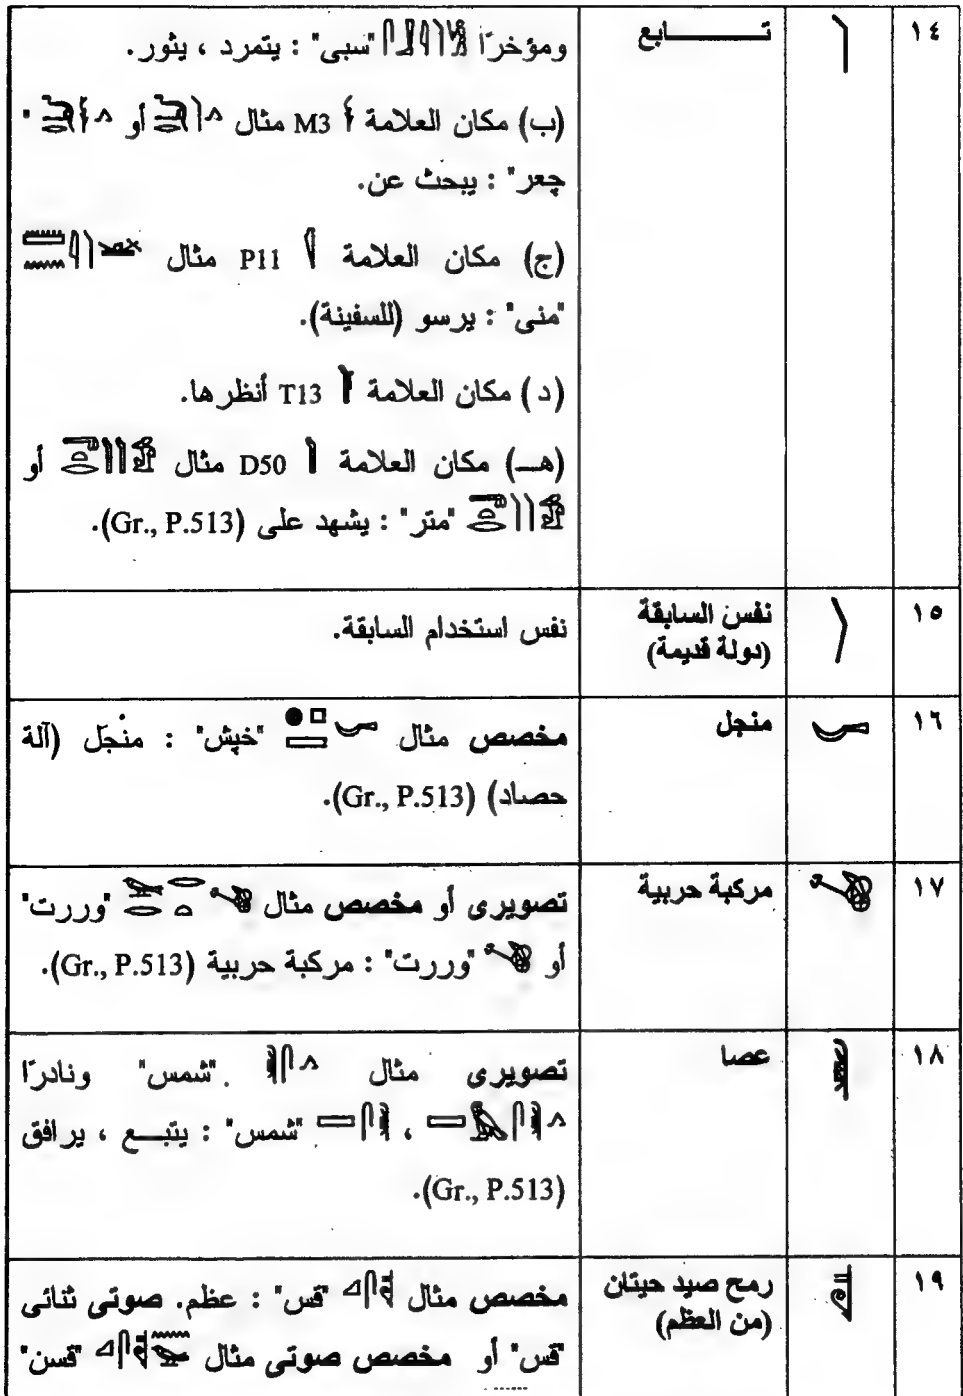 ١٤ تـــــــــابع ومؤخرًا "سبى" : يتمرد ، يثور.
(ب) مكان العلامة M3 مثال أو "
چعر" : يبحث عن.
(ج) مكان العلامة P11 مثال
"منى" : يرسو (للسفينة).
(د) مكان العلامة T13 أنظرها.
(هـ) مكان العلامة D50 مثال أو
"متر" : يشهد على (Gr., P.513).
١٥ نفس السابقة نفس استخدام السابقة.
(دولة قديمة)
١٦ منجل مخصص مثال "خپش" : منْجَل (آلة
حصاد) (Gr., P.513).
١٧ مركبة حربية تصويرى أو مخصص مثال "وررت"
أو "وررت" : مركبة حربية (Gr., P.513).
١٨ عصا تصويرى مثال "شمس" ونادرًا
، "شمس" : يتبـــع ، يرافق
(Gr., P.513).
١٩ رمح صيد حيتان مخصص مثال "قس" : عظم. صوتى ثنائى
(من العظم) "قس" أو مخصص صوتى مثال "قسن"